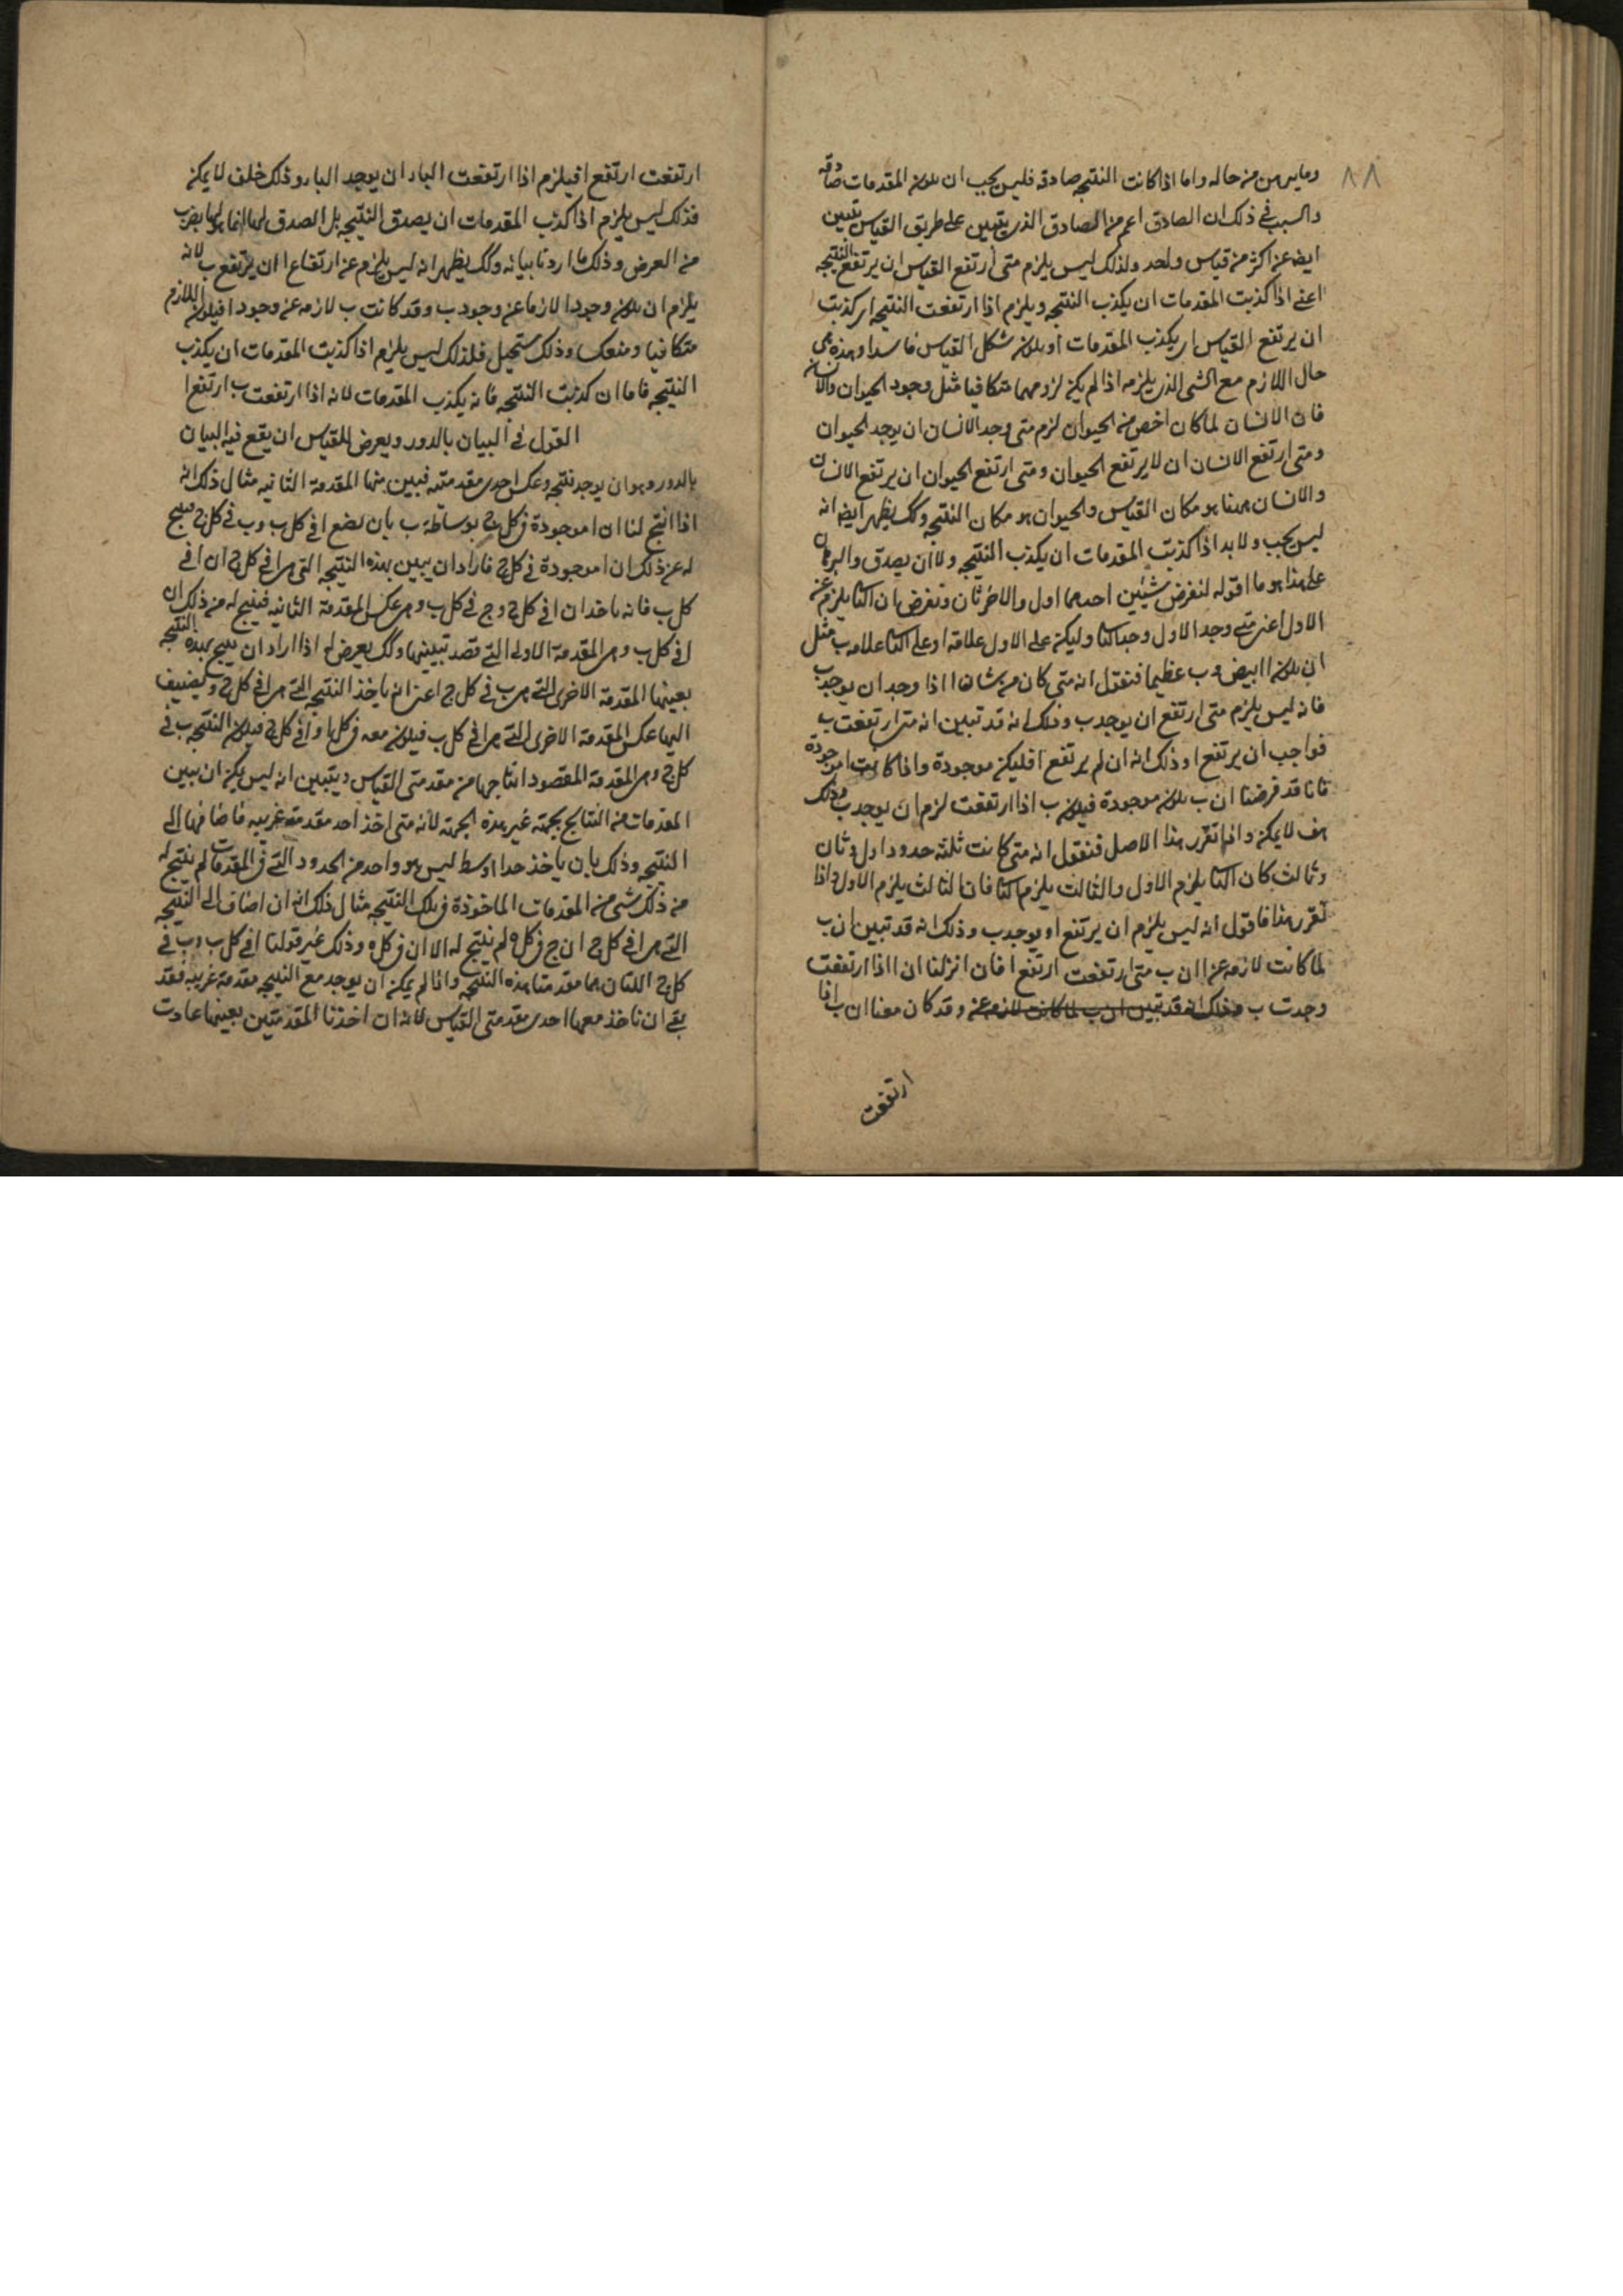 ٨٨
وما يرهن من حاله واما اذا كانت النتيجه صادقه فليس يجب ان يكون المقدمات صادقه
والسبب في ذلك ان الصادق اعم من الصادق الذي يتبين على طريق القياس يتبين
ايضا عن اكثر من قياس واحد ولذلك ليس يلزم متى ارتفع القياس ان يرتفع النتيجه
اعني اذا كذبت المقدمات ان يكذب النتيجه ويلزم اذا ارتفعت النتيجه اي كذبت
ان يرتفع القياس اي يكذب المقدمات او يكون شكل القياس فاسدا وهذه هي
حال اللازم مع الشي الذي يلزمه اذا لم يكن لزومهما متكافيا مثل وجود الحيوان والانسان
فان الانسان لما كان اخص من الحيوان لزم متى وجد الانسان ان يوجد الحيوان
ومتى ارتفع الانسان ان لا يرتفع الحيوان ومتى ارتفع الحيوان ان يرتفع الانسان
والانسان ههنا هو مكان القياس والحيوان هو مكان النتيجه وكك يظهر ايضا انه
ليس يجب ولا بد اذا كذبت المقدمات ان يكذب النتيجه ولا ان يصدق والبرهان
على هذا هو ما اقوله لنفرض شيئين احدهما اول والاخر ثان ونفرض ان الثا يلزم عن
الاول اعني متى وجد الاول وجد الثا وليكن على الاول علاقه ا وعلى الثا علامه ب مثل
ان يكون ا ابيض وب عظيما فنقول انه متى كان من شان ا اذا وجد ان يوجد ب
فانه ليس يلزم متى ارتفع ان يوجد ب وذلك انه قد تبين انه متى ارتفعت ب
فواجب ان يرتفع ا وذلك انه ان لم يرتفع ا فليكن موجودة واذا كانت ا موجودة
فانا قد فرضنا ان ب يكون موجودة فيكون ب اذا ارتفعت لزم ان يوجد ب وذلك
هف لا يمكن واذا تقرر هذا الاصل فنقول انه متى كانت ثلثه حدود اول وثان
وثالث كان الثا يلزم الاول والثالث يلزم الثا فان الثالث يلزم الاول واذا
تقرر هذا فاقول انه ليس يلزم ان يرتفع ا ويوجد ب وذلك انه قد تبين ان ب
لما كانت لازمه عن ا ان ب متى ارتفعت ارتفع ا فان انزلنا ان ا اذا ارتفعت
وجدت ب وذلك انه قد تبين ان ب لما كانت لازمه عن وقد كان معنا ان ب اذا
ارتفعت
ارتفعت ارتفع ا فيلزم اذا ارتفعت الباء ان يوجد الباء وذلك خلف لا يمكن
فذلك ليس يلزم اذا كذب المقدمات ان يصدق النتيجه بل الصدق لها انما هو لها بضرب
من العرض وذلك ما اردنا بيانه وكك يظهر انه ليس يلزم عن ارتفاع ا ان يرتفع ب لانه
يلزم ان يكون وجود ا لازما عن وجود ب وقد كانت ب لازمه عن وجود ا فيكون اللازم
متكافيا ومنعكسا وذلك مستحيل فلذلك ليس يلزم اذا كذبت المقدمات ان يكذب
النتيجه فاما ان كذبت النتيجه فانه يكذب المقدمات لانه اذا ارتفعت ب ارتفع ا
القول في البيان بالدور ويعرض للقياس ان يقع فيه البيان
بالدور وهو ان يوجد نتيجه وعكس احدى مقدمتيه فيبين منها المقدمة الثانيه مثال ذلك انه
اذا انتج لنا ان ا موجودة في كل ج بوساطة ب بان نضع ا في كل ب وب في كل ج فينتج
له عن ذلك ان ا موجودة في كل ج فاراد ان يبين بهذه النتيجه التي هي ا في كل ج ان ا في
كل ب فانه ياخذ ان ا في كل ج وج في كل ب وهي عكس المقدمة الثانيه فينتج له من ذلك ان
ا في كل ب وهي المقدمة الاولى التي قصد تبيينها وكك يعرض له اذا اراد ان ينتج بهذه النتيجه
بعينها المقدمة الاخرى التي هي ب في كل ج اعني انه ياخذ النتيجه التي هي ا في كل ج ويضيف
اليها عكس المقدمة الاخرى التي هي ا في كل ب فيكون معه ب في كل ا وا في كل ج فيكون النتيجه ب في
كل ج وهي المقدمة المقصود انتاجها من مقدمتي القياس ويتبين انه ليس يمكن ان يبين
المقدمات من النتايج بجهة غير هذه الجهة لانه متى اخذ احد مقدمة غريبه فاضافها الى
النتيجه وذلك بان ياخذ حدا اوسط ليس هو واحد من الحدود التي في المقدمات لم ينتج له
من ذلك شي من المقدمات الماخوذة في تلك النتيجه مثال ذلك انه ان اضاف الى النتيجه
التي هي ا في كل ج ان ج في كل ه لم ينتج له الا ان ا في كل ه وذلك غير قولنا ا في كل ب وب في
كل ج اللتان هما مقدمتا هذه النتيجه واذا لم يمكن ان يوجد مع النتيجه مقدمة غريبه فقد
بقي ان ناخذ معها احدى مقدمتي القياس لانه ان اخذنا المقدمتين بعينهما عادت